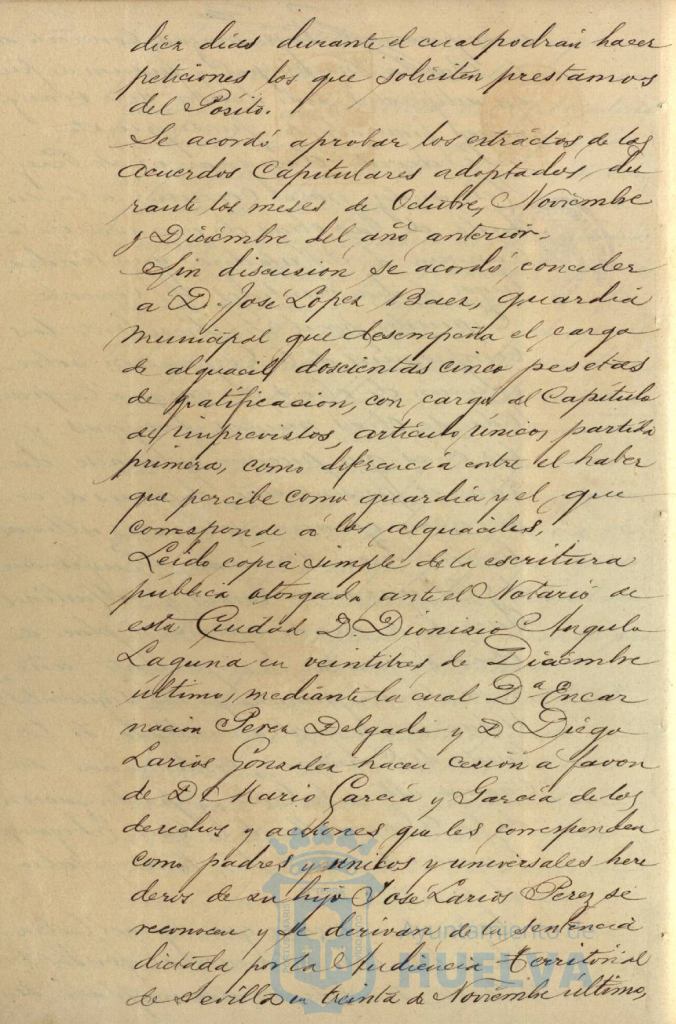 diez dias durante el cual podrán hacer
peticiones los que soliciten prestamos
del Posito.
Se acordó aprobar los extractos de los
acuerdos Capitulares adoptados du
rante los meses de Octubre, Noviembre
y Diciembre del año anterior.
Sin discusión se acordó conceder
a D. José Lopez Baez, guardia
municipal que desempeña el cargo
de alguacil doscientas cinco pesetas
de gratificacion, con cargo al Capitulo
de imprevistos, articulo único, partida
primera, como diferencia entre el haber
que percibe como guardia y el que
corresponde a los alguaciles.
Leido copia simple de la escritura
pública otorgada ante el Notario de
esta Ciudad D. Dionisio Angulo
Laguna en veintitres de Diciembre
último, mediante la cual Dª Encar
nacion Perez Delgado y D Diego
Larios Gonzalez hacen cesión a favor
de D Mario García y García de los
derechos y acciones que les corresponden
como padres y únicos y universales here
deros de su hijo José Larios Perez se
reconocen y se derivan de la sentencia
dictada por la Audiencia Territorial
de Sevilla en treinta de Noviembre último,
Ayuntamiento de
HUELVA